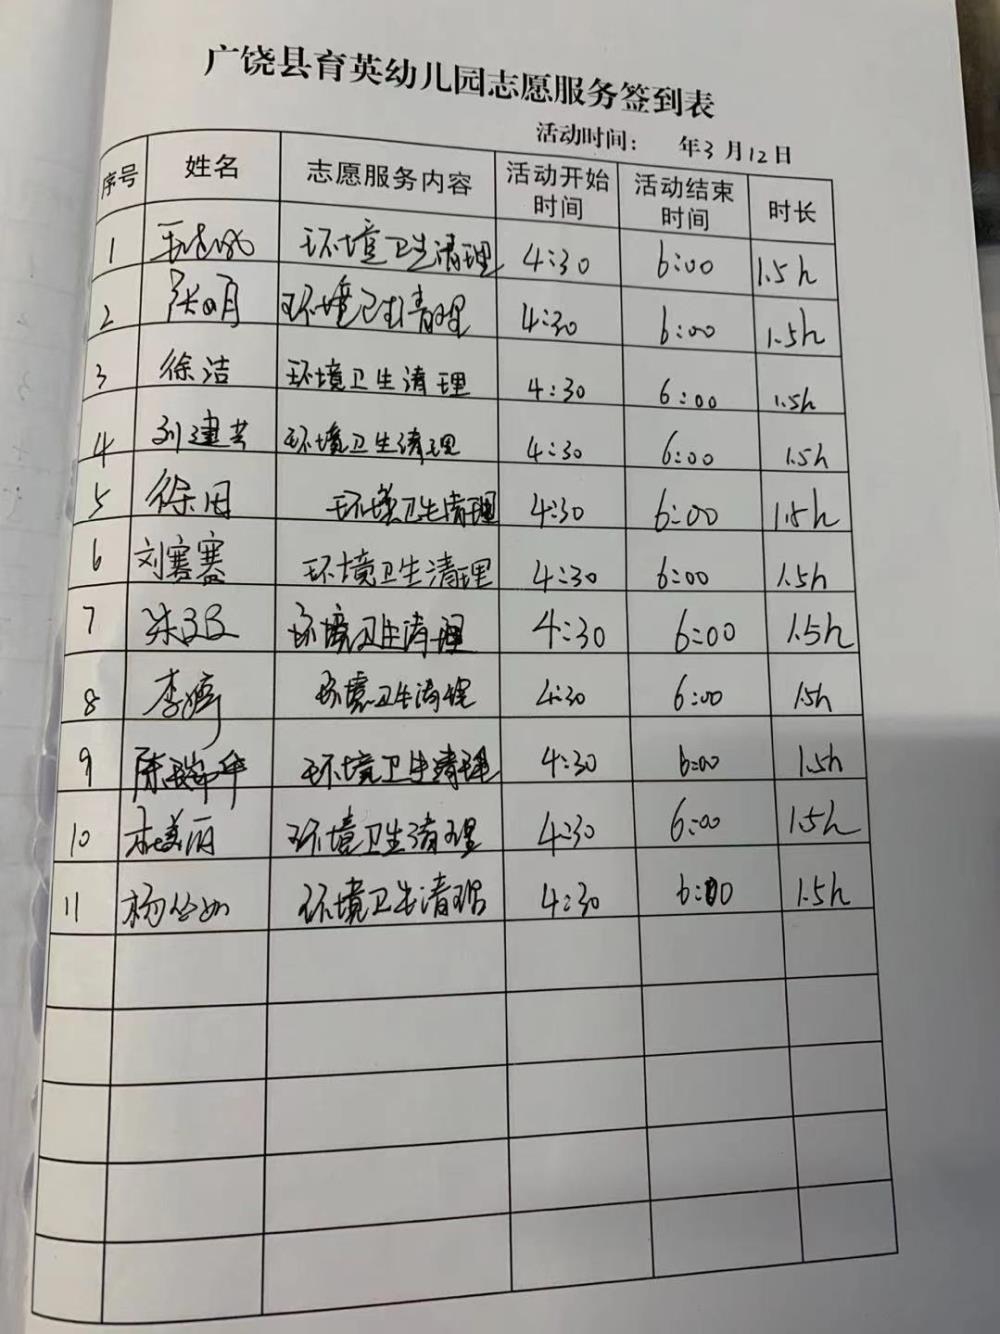 广饶县育英幼儿园志愿服务签到表
活动时间： 年3月12日
序号 姓名 志愿服务内容 活动开始时间 活动结束时间 时长
1 环境卫生清理 4:30 6:00 1.5h
2 张明 环境卫生清理 4:30 6:00 1.5h
3 徐洁 环境卫生清理 4:30 6:00 1.5h
4 刘建芸 环境卫生清理 4:30 6:00 1.5h
5 徐团 环境卫生清理 4:30 6:00 1.5h
6 刘赛赛 环境卫生清理 4:30 6:00 1.5h
7 环境卫生清理 4:30 6:00 1.5h
8 李婷 环境卫生清理 4:30 6:00 1.5h
9 陈瑞华 环境卫生清理 4:30 6:00 1.5h
10 杜美丽 环境卫生清理 4:30 6:00 1.5h
11 杨 环境卫生清理 4:30 6:00 1.5h